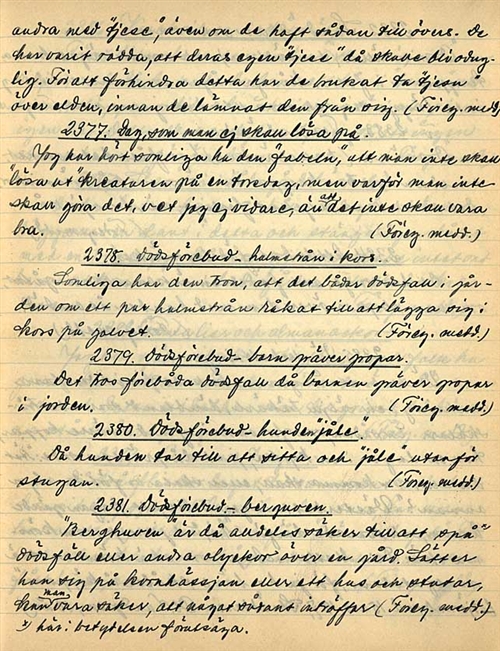 andra med "tjese", även om de haft sådan till övers. De
har varit rädda, att deras egen "tjese" då skulle bli odug-
lig. För att förhindra detta har de brukat ta "tjesen"
över elden, innan de lämnat den från sig. (Föreg. medd.)
2377. Dag, som man ej skall lösa på.
Jag har hört somliga ha den "fabeln", att man inte skall
"lösa ut" kreaturen på en torsdag, men varför man inte
skall göra det, vet jag ej vidare, än att det inte skall vara
bra. (Föreg. medd.)
2378. Dödsförebud - halmstrån i kors.
Somliga har den tron, att det bådar dödsfall i går-
den om ett par halmstrån råkat till att lägga sig i
kors på golvet. (Föreg. medd.)
2379. Dödsförebud - barn gräver gropar.
Det tros förebåda dödsfall då barnen gräver gropar
i jorden. (Föreg. medd.)
2380. Dödsförebud - hunden "jåle".
Då hunden tar till att sitta och "jåle" utanför
stugan. (Föreg. medd.)
2381. Dödsförebud - berguven.
"Berghuven" är då alldeles säker till att "spå" x)
dödsfall eller andra olyckor över en gård. Sätter
han sig på kornhässjan eller ett hus och tutar,
kan man vara säker, att något sådant inträffar (Föreg. medd.)
x) här i betydelsen förutsäga.